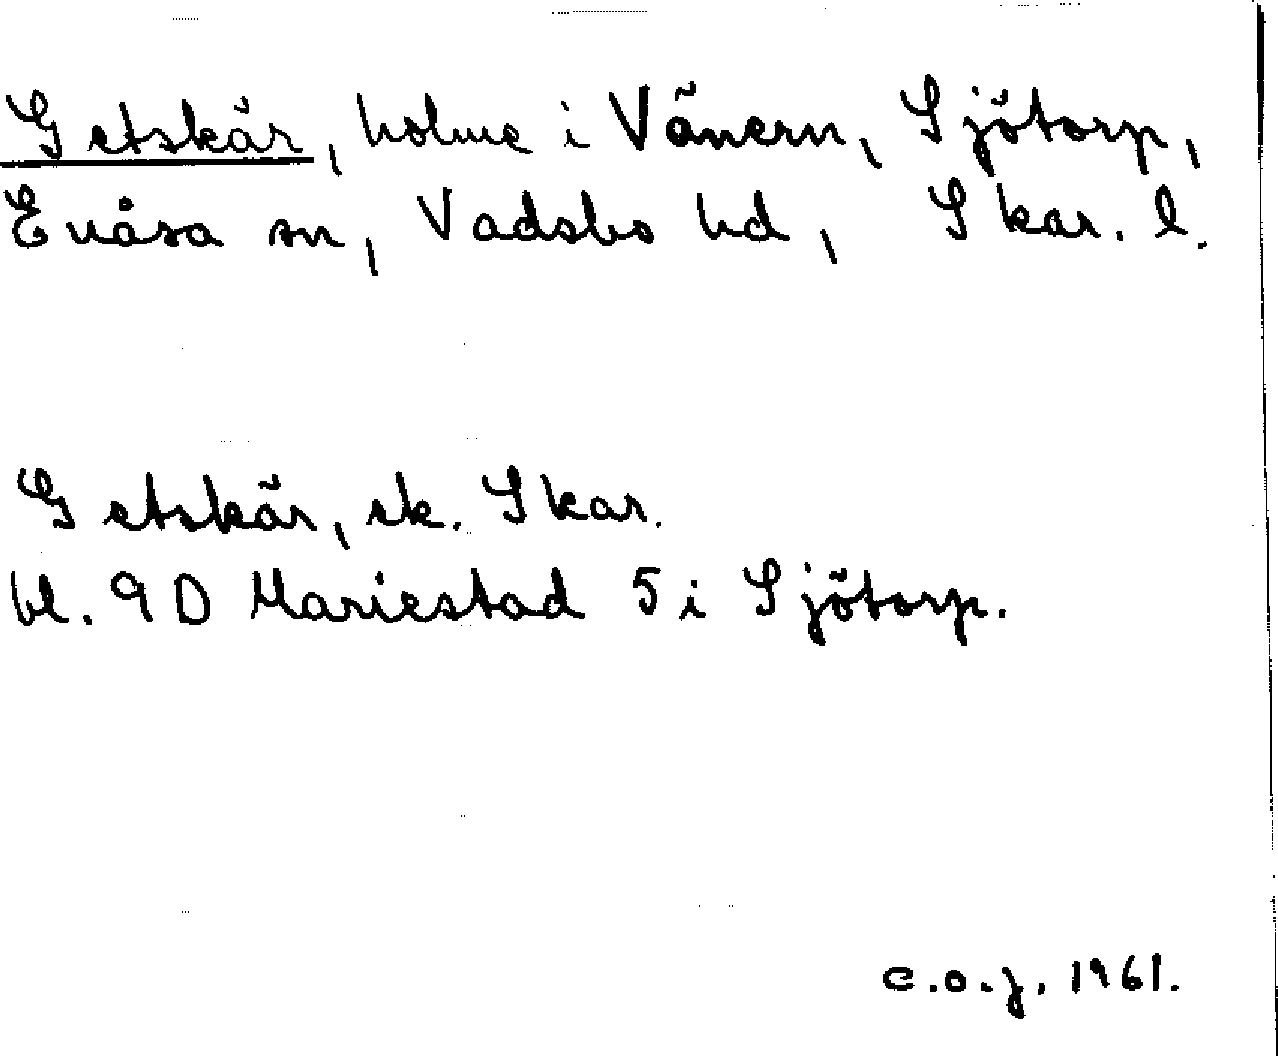 Getskär, holme i Vänern, Sjötorp,
Enåsa sn, Vadsbo hd, Skar. l.
Getskär, ek. Skar.
bl. 9D Mariestad 5 i Sjötorp.
C.O.J. 1961.